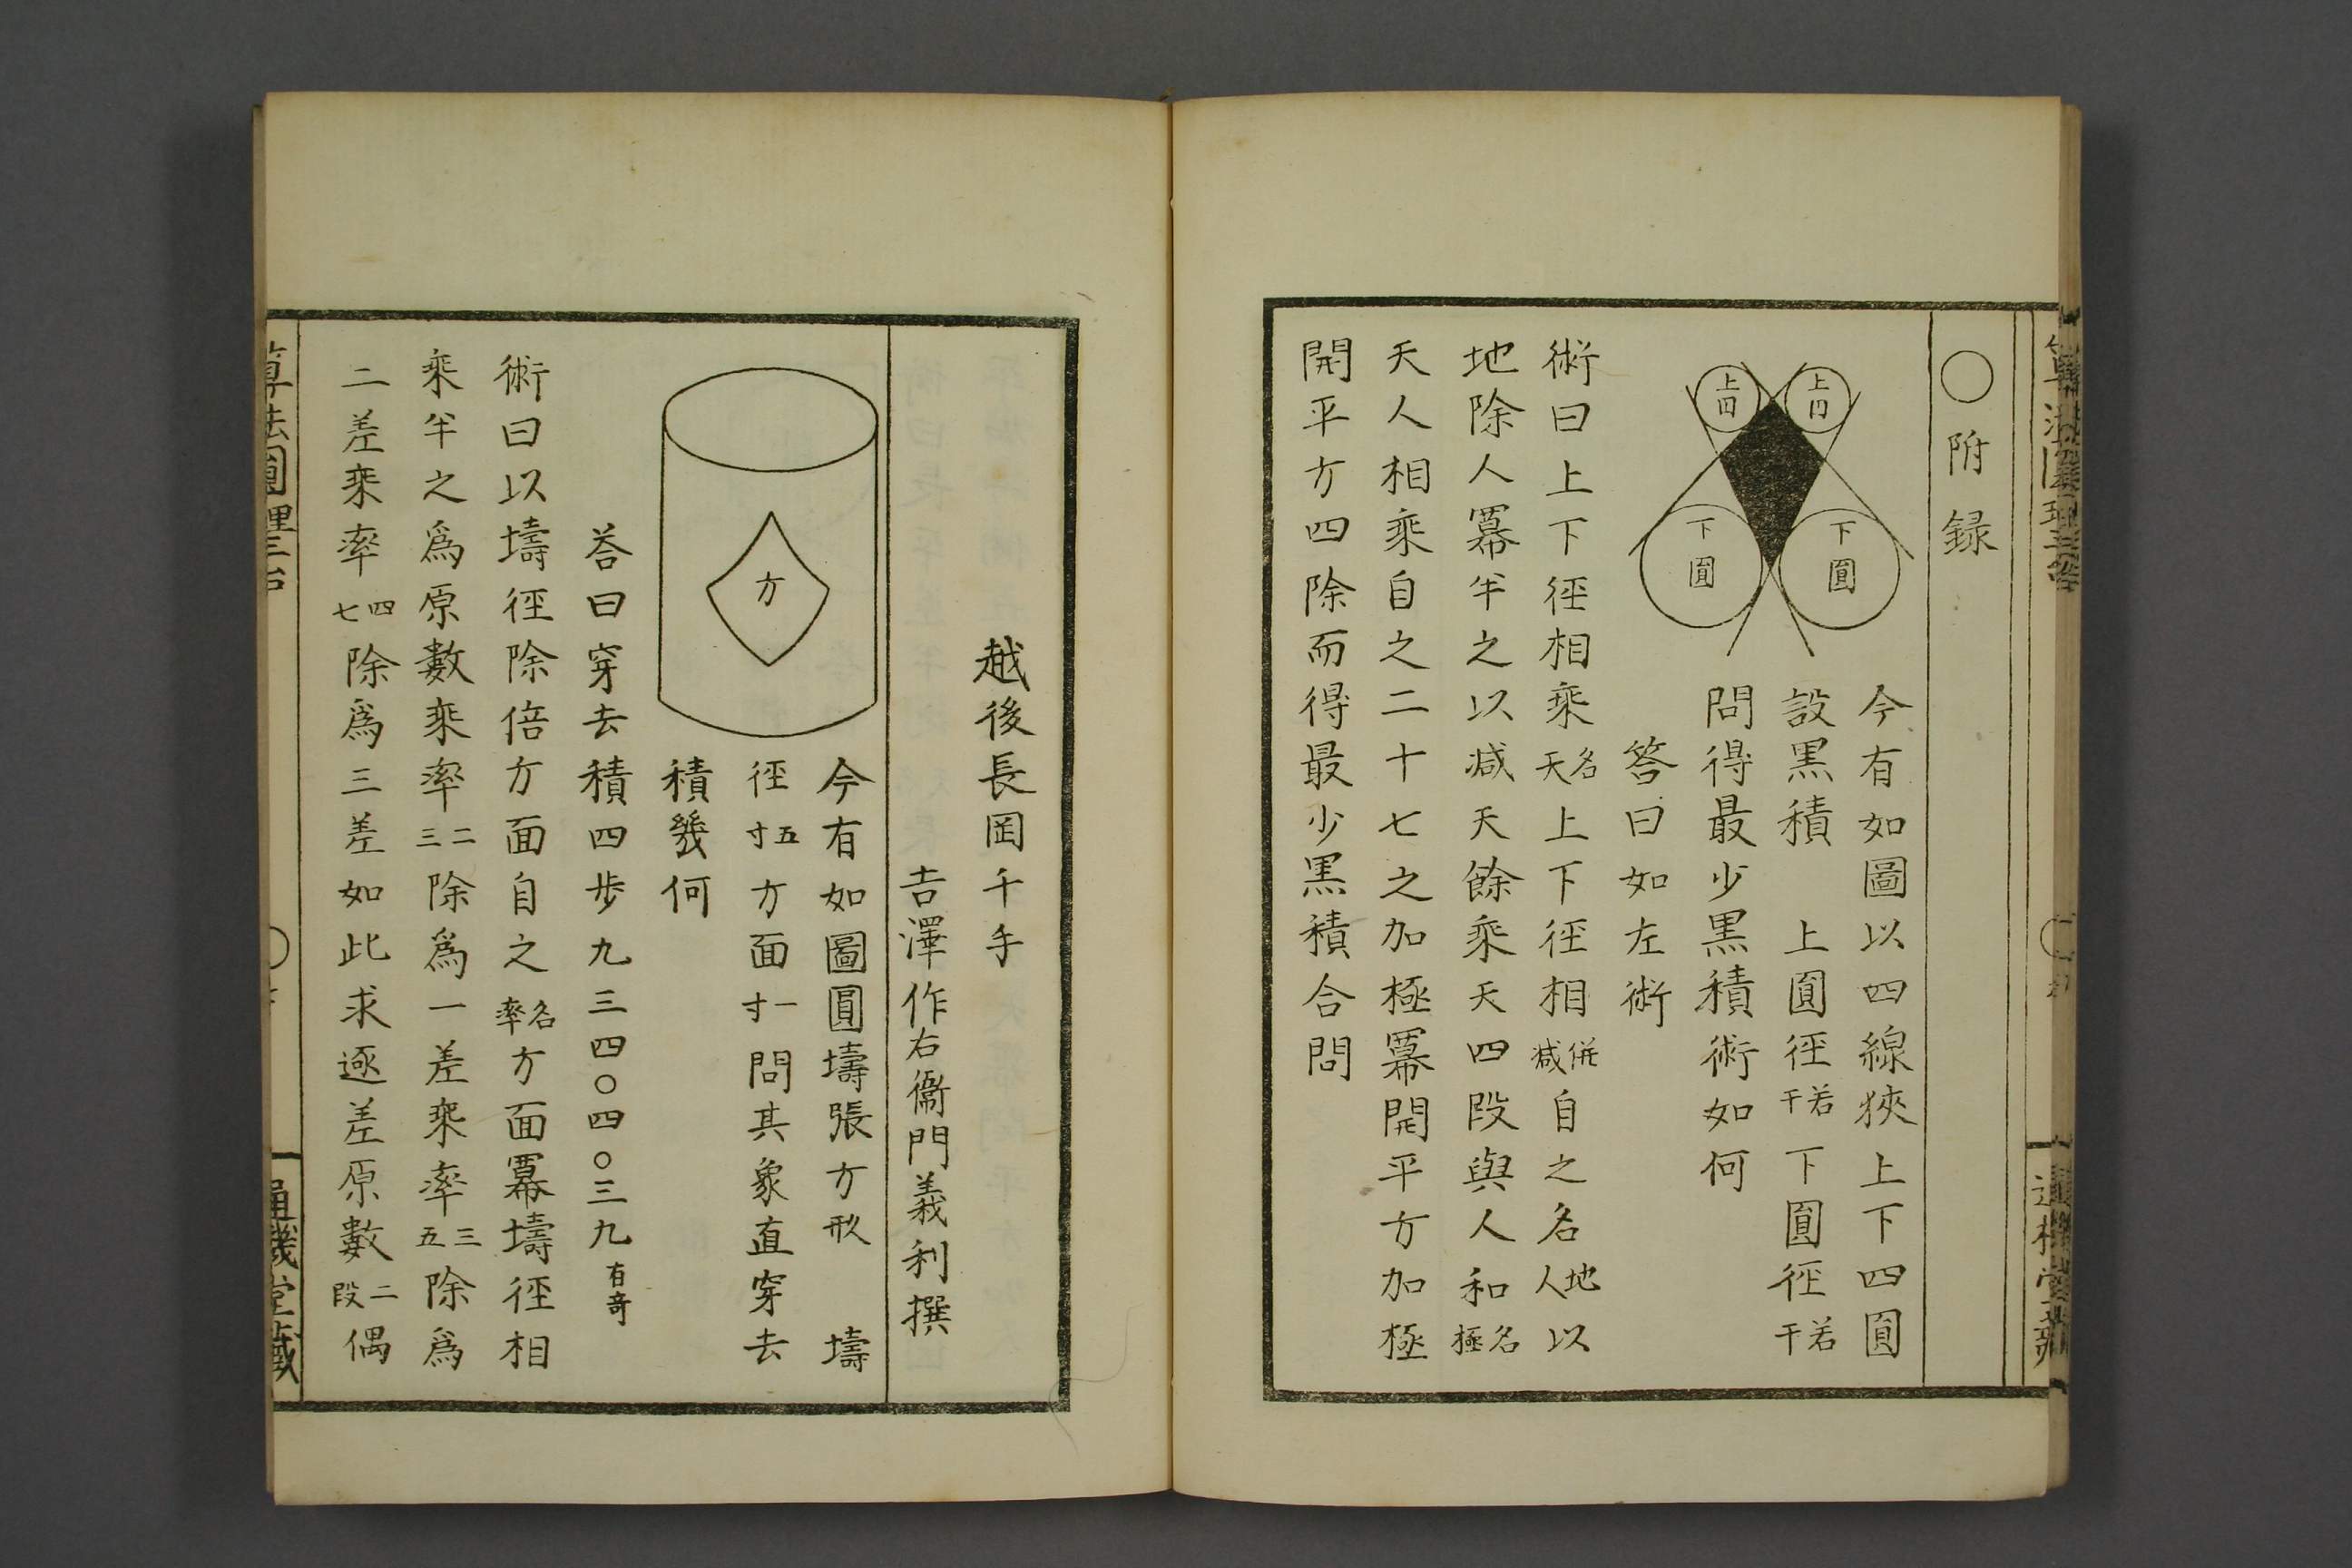 ○附録
上円
上円
下圓
下圓
今有如圖以四線狹上下四圓
設黒積　上圓径若干下圓径若干
問得最少黒積術如何
答曰如左術
術曰上下径相乗名天上下径相併減自之名地人以
地除人冪半之以減天餘乘天四段與人和名極
天人相乘自之二十七之加極冪開平方加極
開平方四除而得最少黒積合問
越後長岡千手
吉澤作右衞門義利撰
方
今有如圖圓壔張方形　壔
径五寸方面一寸問其象直穿去
積幾何
荅曰穿去積四歩九三四〇四〇三九有奇
術曰以壔徑除倍方面自之名率方面冪壔徑相
乘半之爲原數乘率二三除爲一差乘率三五除爲
二差乘率四七除爲三差如此求逐差原數二段偶
算法圓理三台
通機堂藏